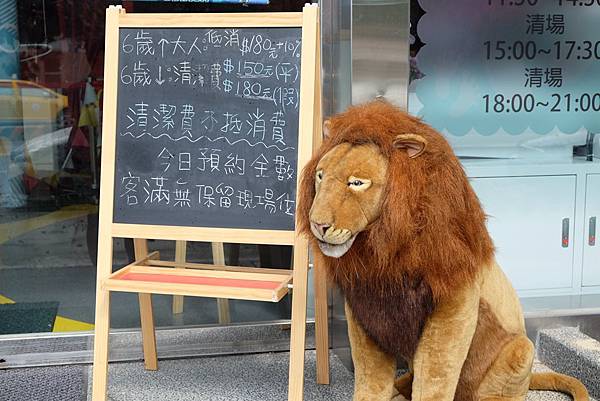 6歲↑大人:低消$180元+10%
6歲↓:清潔費$150元(平)
$180元(假)
清潔費不抵消費
今日預約全數
客滿無保留現場位
11:30~14:30
清場
15:00~17:30
清場
18:00~21:00